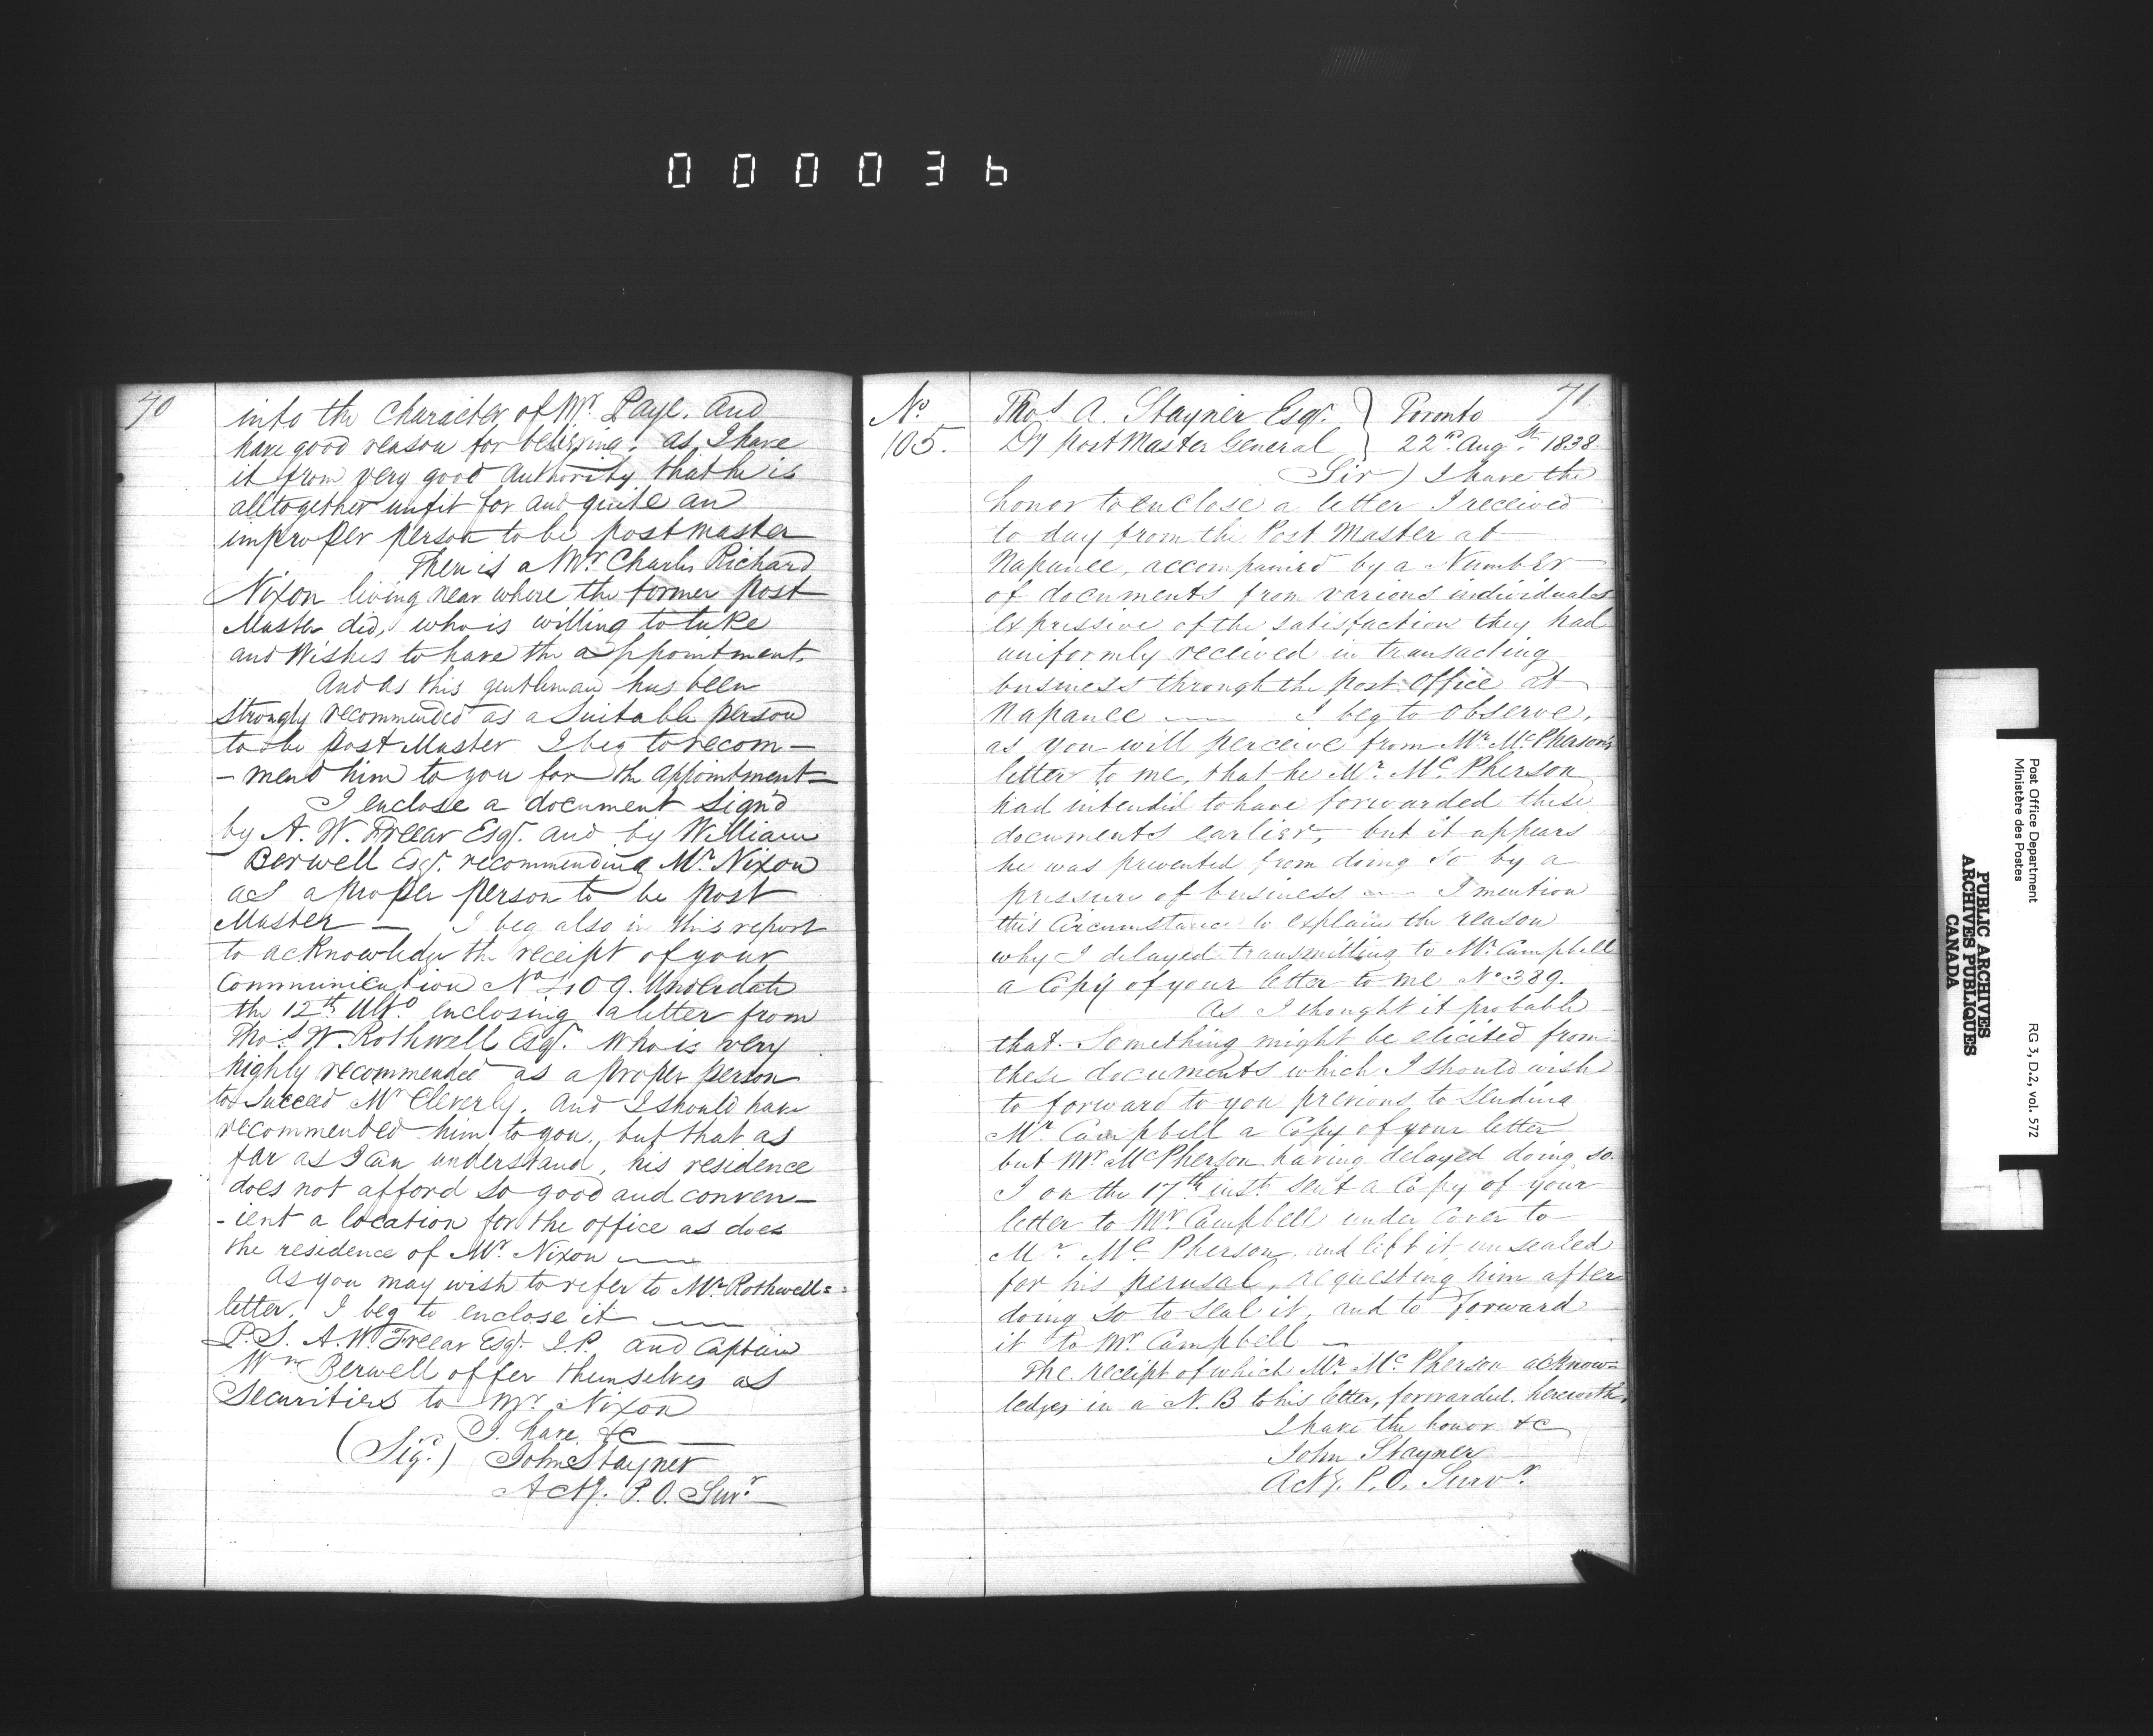 000036
70
into the Character of Mr. Paye. And
have good reason for believing, as I have
it from very good authority that he is
alltogether unfit for and quite an
improper person to be postmaster
There is a Mr. Charles Richard
Nixon living near where the former post
Master did, who is willing to take
and Wishes to have the appointment.
And as this gentleman has been
strongly recommended as a Suitable person
to be post Master I beg to recom-
-mend him to you for the appointment
I enclose a document Sign'd
by A. W. Freear Esqr. and by William
Berwell Esqr. recommending Mr. Nixon
as a proper person to be post
Master — I beg also in this report
to acknowledge the receipt of your
Communication No 409. Under date
the 12th Ulto. enclosing a letter from
Thos. W. Rothwell Esqr. Who is very
highly recommended as a proper person
to Succeed Mr Cleverly. And I should have
recommended him to you, but that as
far as I can understand, his residence
does not afford so good and conven-
-ient a location for the office as does
the residence of Mr. Nixon
As you may wish to refer to Mr. Rothwells
letter, I beg to enclose it
P.S. A. W. Freear Esqr. J.P. and Captain
Wm Berwell offer themselves as
Securities to Mr. Nixon
I have &c
(Sigd.) John Stayner
Actg. P.O. Surr.
71.
No
105.
Thos A. Stayner Esqr. } Toronto
Dy post Master General } 22nd Augst. 1838.
Sir) I have the
honor to enclose a letter I received
to day from the Post Master at
Napanee, accompanied by a Number
of documents from various individuals
expressive of the satisfaction they had
uniformly received in transacting
business through the post Office at
Napanee — I beg to observe,
as you will perceive from Mr. McPherson's
letter to me, that he Mr. McPherson
had intended to have forwarded these
documents earlier, but it appears
he was prevented from doing so by a
pressure of business — I mention
this Circumstance to explain the reason
why I delayed transmitting to Mr. Campbell
a Copy of your letter to me No. 389.
As I thought it probable
that Something might be elicited from
these documents which I should wish
to forward to you previous to sending
Mr. Campbell a Copy of your letter
but Mr. McPherson having delayed doing so
I on the 17th inst. sent a Copy of your
letter to Mr. Campbell under Cover to
Mr. McPherson, and left it unsealed
for his perusal, requesting him after
doing so to seal it, and to forward
it to Mr. Campbell —
The receipt of which Mr. McPherson acknow=
ledges in a N.B to his letter, forwarded herewith.
I have the honor &c
John Stayner
Actg. P.O. Survr.
Post Office Department
Ministère des Postes
RG 3, D.2, vol. 572
PUBLIC ARCHIVES
ARCHIVES PUBLIQUES
CANADA